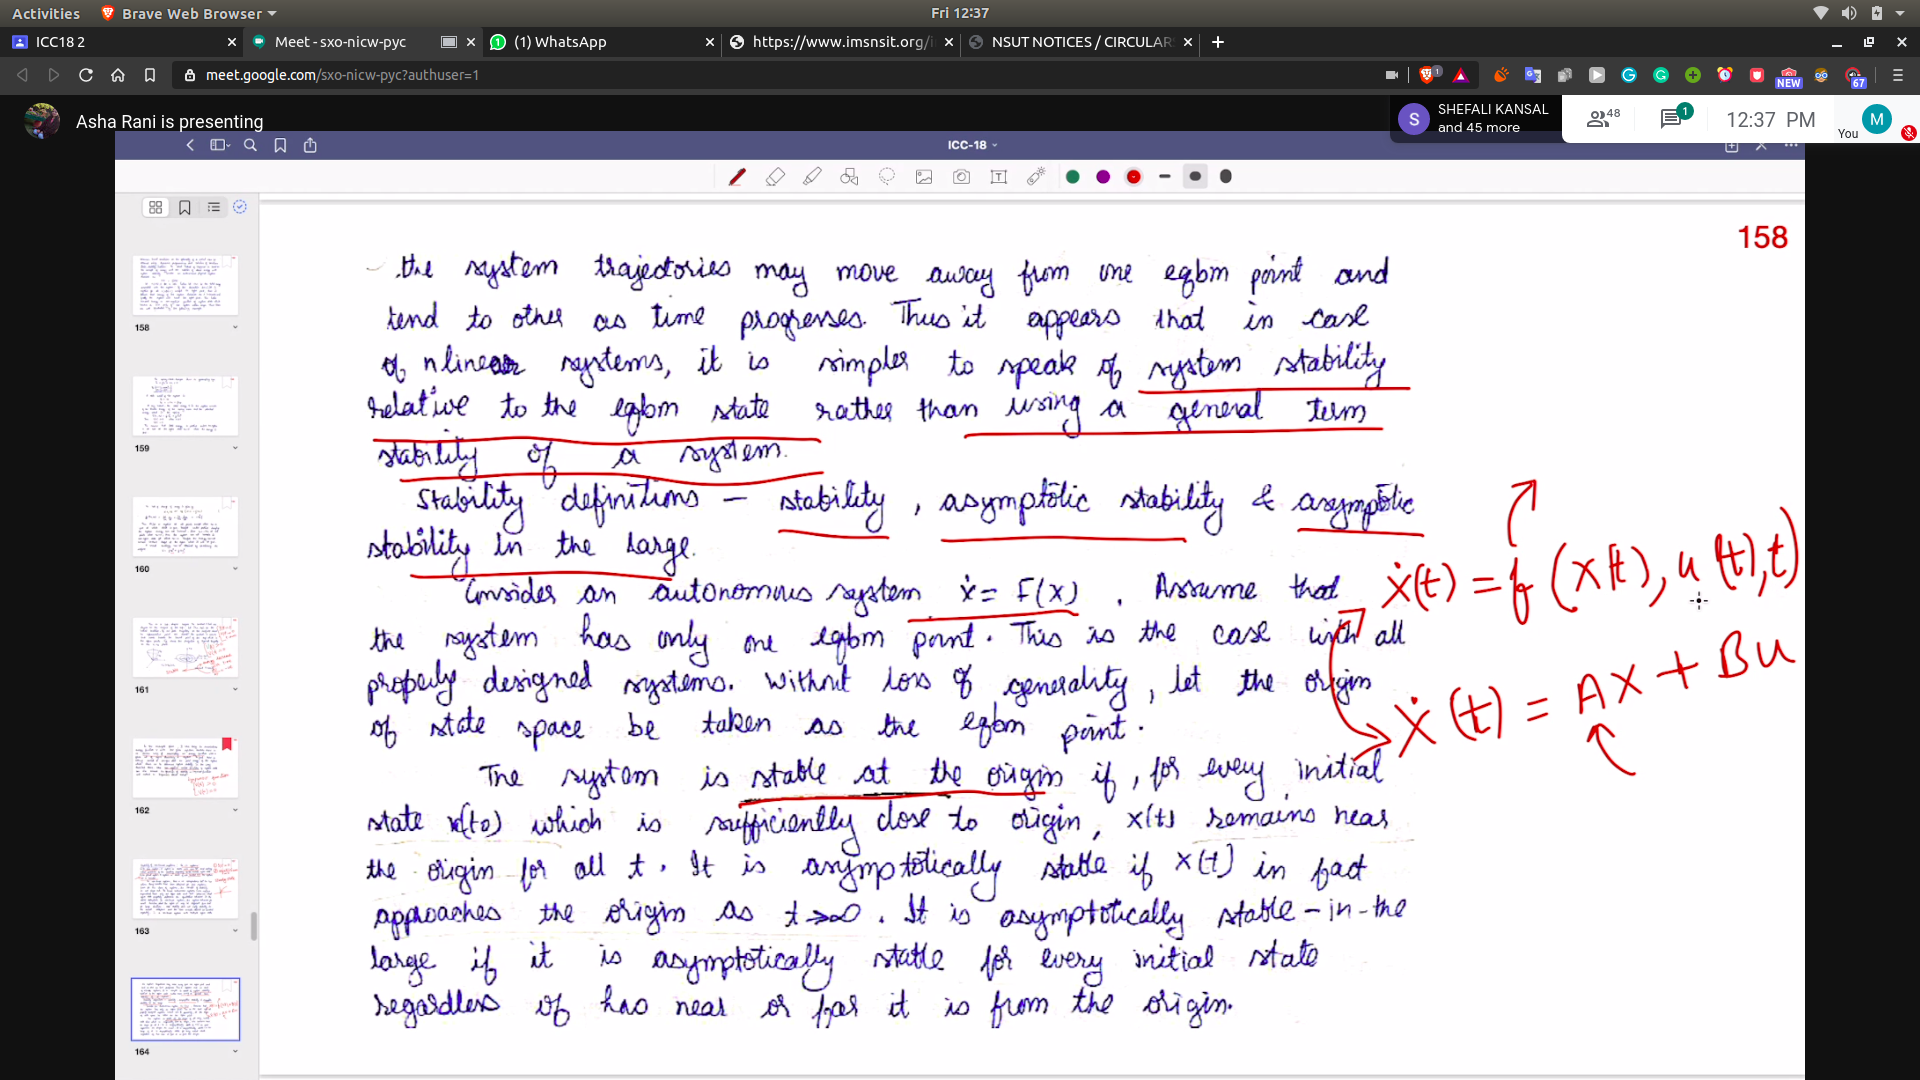 Activities Brave Web Browser Fri 12:37
ICC18 2 Meet - sxo-nicw-pyc (1) WhatsApp https://www.imsnsit.org/i NSUT NOTICES / CIRCULAR
meet.google.com/sxo-nicw-pyc?authuser=1 1 NEW 67
Asha Rani is presenting
S SHEFALI KANSAL
and 45 more
48 1 12:37 PM You M
ICC-18
T
158
the system trajectories may move away from one eqbm point and
tend to other as time progresses. Thus it appears that in case
of nlinear systems, it is simpler to speak of system stability
relative to the eqbm state rather than using a general term
stability of a system.
Stability definitions – stability, asymptotic stability & asymptotic
stability in the large.
Consider an autonomous system ẋ = F(x). Assume that
the system has only one eqbm point. This is the case with all
properly designed systems. Without loss of generality, let the origin
of state space be taken as the eqbm point.
The system is stable at the origin if, for every initial
state x(to) which is sufficiently close to origin, x(t) remains near
the origin for all t. It is asymptotically stable if x(t) in fact
approaches the origin as t→∞. It is asymptotically stable-in-the
large if it is asymptotically stable for every initial state
regardless of how near or far it is from the origin.
ẋ(t) = f(x(t), u(t), t)
ẋ(t) = AX + BU
158
159
160
161
162
163
164